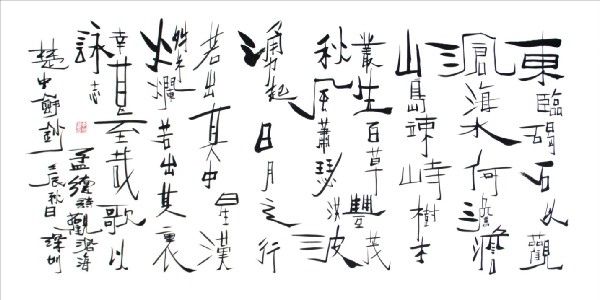 東臨碣石以觀
滄海水何澹澹
山島竦峙樹木
叢生百草豐茂
秋風蕭瑟洪波
涌起日月之行
若出其中星漢
燦爛若出其裏
幸甚至哉歌以
詠志 孟德詩觀滄海
楚中 鈔 壬辰秋日深圳